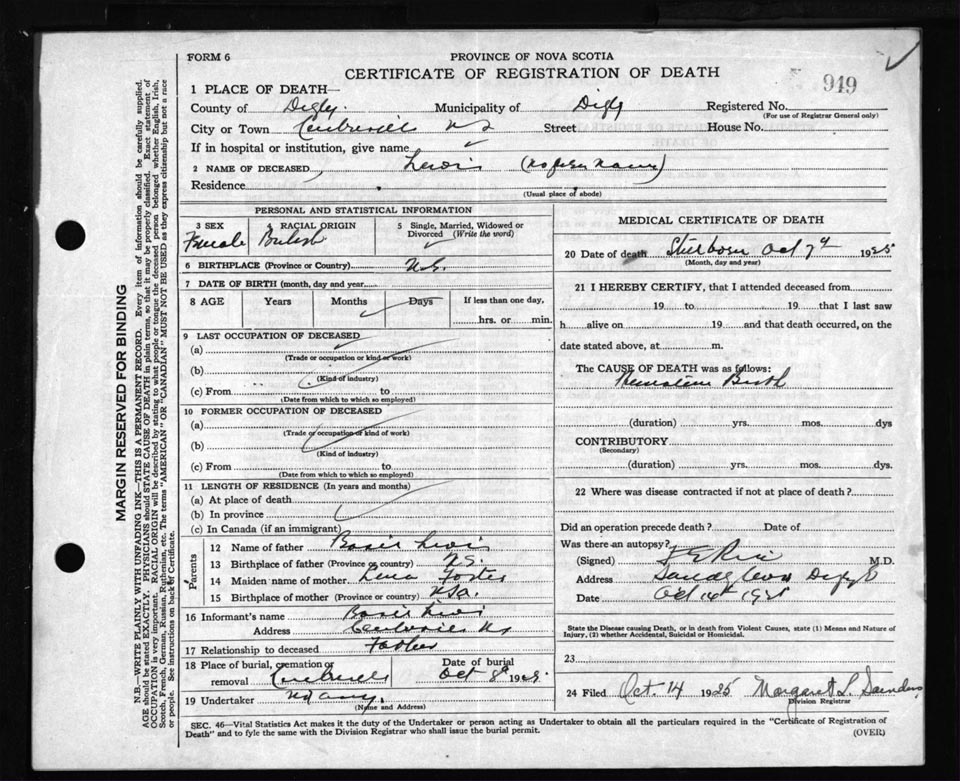 FORM 6
PROVINCE OF NOVA SCOTIA
CERTIFICATE OF REGISTRATION OF DEATH
949
1 PLACE OF DEATH—
County of Digby. Municipality of Digby Registered No.
(For use of Registrar General only)
City or Town Centreville NS Street House No.
If in hospital or institution, give name
2 NAME OF DECEASED Lewis (No given Name)
Residence
(Usual place of abode)
PERSONAL AND STATISTICAL INFORMATION
3 SEX RACIAL ORIGIN 5 Single, Married, Widowed or Divorced (Write the word)
Female British
6 BIRTHPLACE (Province or Country) N.S.
7 DATE OF BIRTH (month, day and year
8 AGE Years Months Days If less than one day,
hrs. or min.
9 LAST OCCUPATION OF DECEASED
(a)
(Trade or occupation or kind or work)
(b)
(Kind of industry)
(c) From to
(Date from which to which so employed)
10 FORMER OCCUPATION OF DECEASED
(a)
(Trade or occupation or kind of work)
(b)
(Kind of industry)
(c) From to
(Date from which to which so employed)
11 LENGTH OF RESIDENCE (In years and months)
(a) At place of death
(b) In province
(c) In Canada (if an immigrant)
Parents
12 Name of father Basil Lewis
13 Birthplace of father (Province or country) N.S.
14 Maiden name of mother Lena Foster
15 Birthplace of mother (Province or country) USA.
16 Informant's name Basil Lewis
Address Centreville NS
17 Relationship to deceased Father
18 Place of burial, cremation or removal Centreville
Date of burial Oct 8 1925.
19 Undertaker
(Name and Address)
MEDICAL CERTIFICATE OF DEATH
20 Date of death Stillborn Oct 7th 1925
(Month, day and year)
21 I HEREBY CERTIFY, that I attended deceased from
19 to 19 , that I last saw
h alive on 19 and that death occurred, on the
date stated above, at m.
The CAUSE OF DEATH was as follows:
Premature Birth
(duration) yrs. mos. dys
CONTRIBUTORY
(Secondary)
(duration) yrs. mos. dys.
22 Where was disease contracted if not at place of death?
Did an operation precede death? Date of
Was there an autopsy?
(Signed) M.D.
Address Sandy Cove Digby Co
Date Oct 14th 1925
State the Disease causing Death, or in death from Violent Causes, state (1) Means and Nature of
Injury, (2) whether Accidental, Suicidal or Homicidal.
23
24 Filed Oct. 14 1925 Margaret L. Saunders
Division Registrar
SEC. 46—Vital Statistics Act makes it the duty of the Undertaker or person acting as Undertaker to obtain all the particulars required in the "Certificate of Registration of
Death" and to fyle the same with the Division Registrar who shall issue the burial permit.
(OVER)
MARGIN RESERVED FOR BINDING
N.B.—WRITE PLAINLY WITH UNFADING INK—THIS IS A PERMANENT RECORD. Every item of information should be carefully supplied.
AGE should be stated EXACTLY. PHYSICIANS should STATE CAUSE OF DEATH in plain terms, so that it may be properly classified. Exact statement of
OCCUPATION is very important. RACIAL ORIGIN will be described by stating to what people or tongue the deceased person belonged whether English, Irish,
Scotch, French, German, Russian, Ruthenian, etc. The terms "AMERICAN" OR "CANADIAN" MUST NOT BE USED as they express citizenship but not a race
or people. See instructions on back of Certificate.